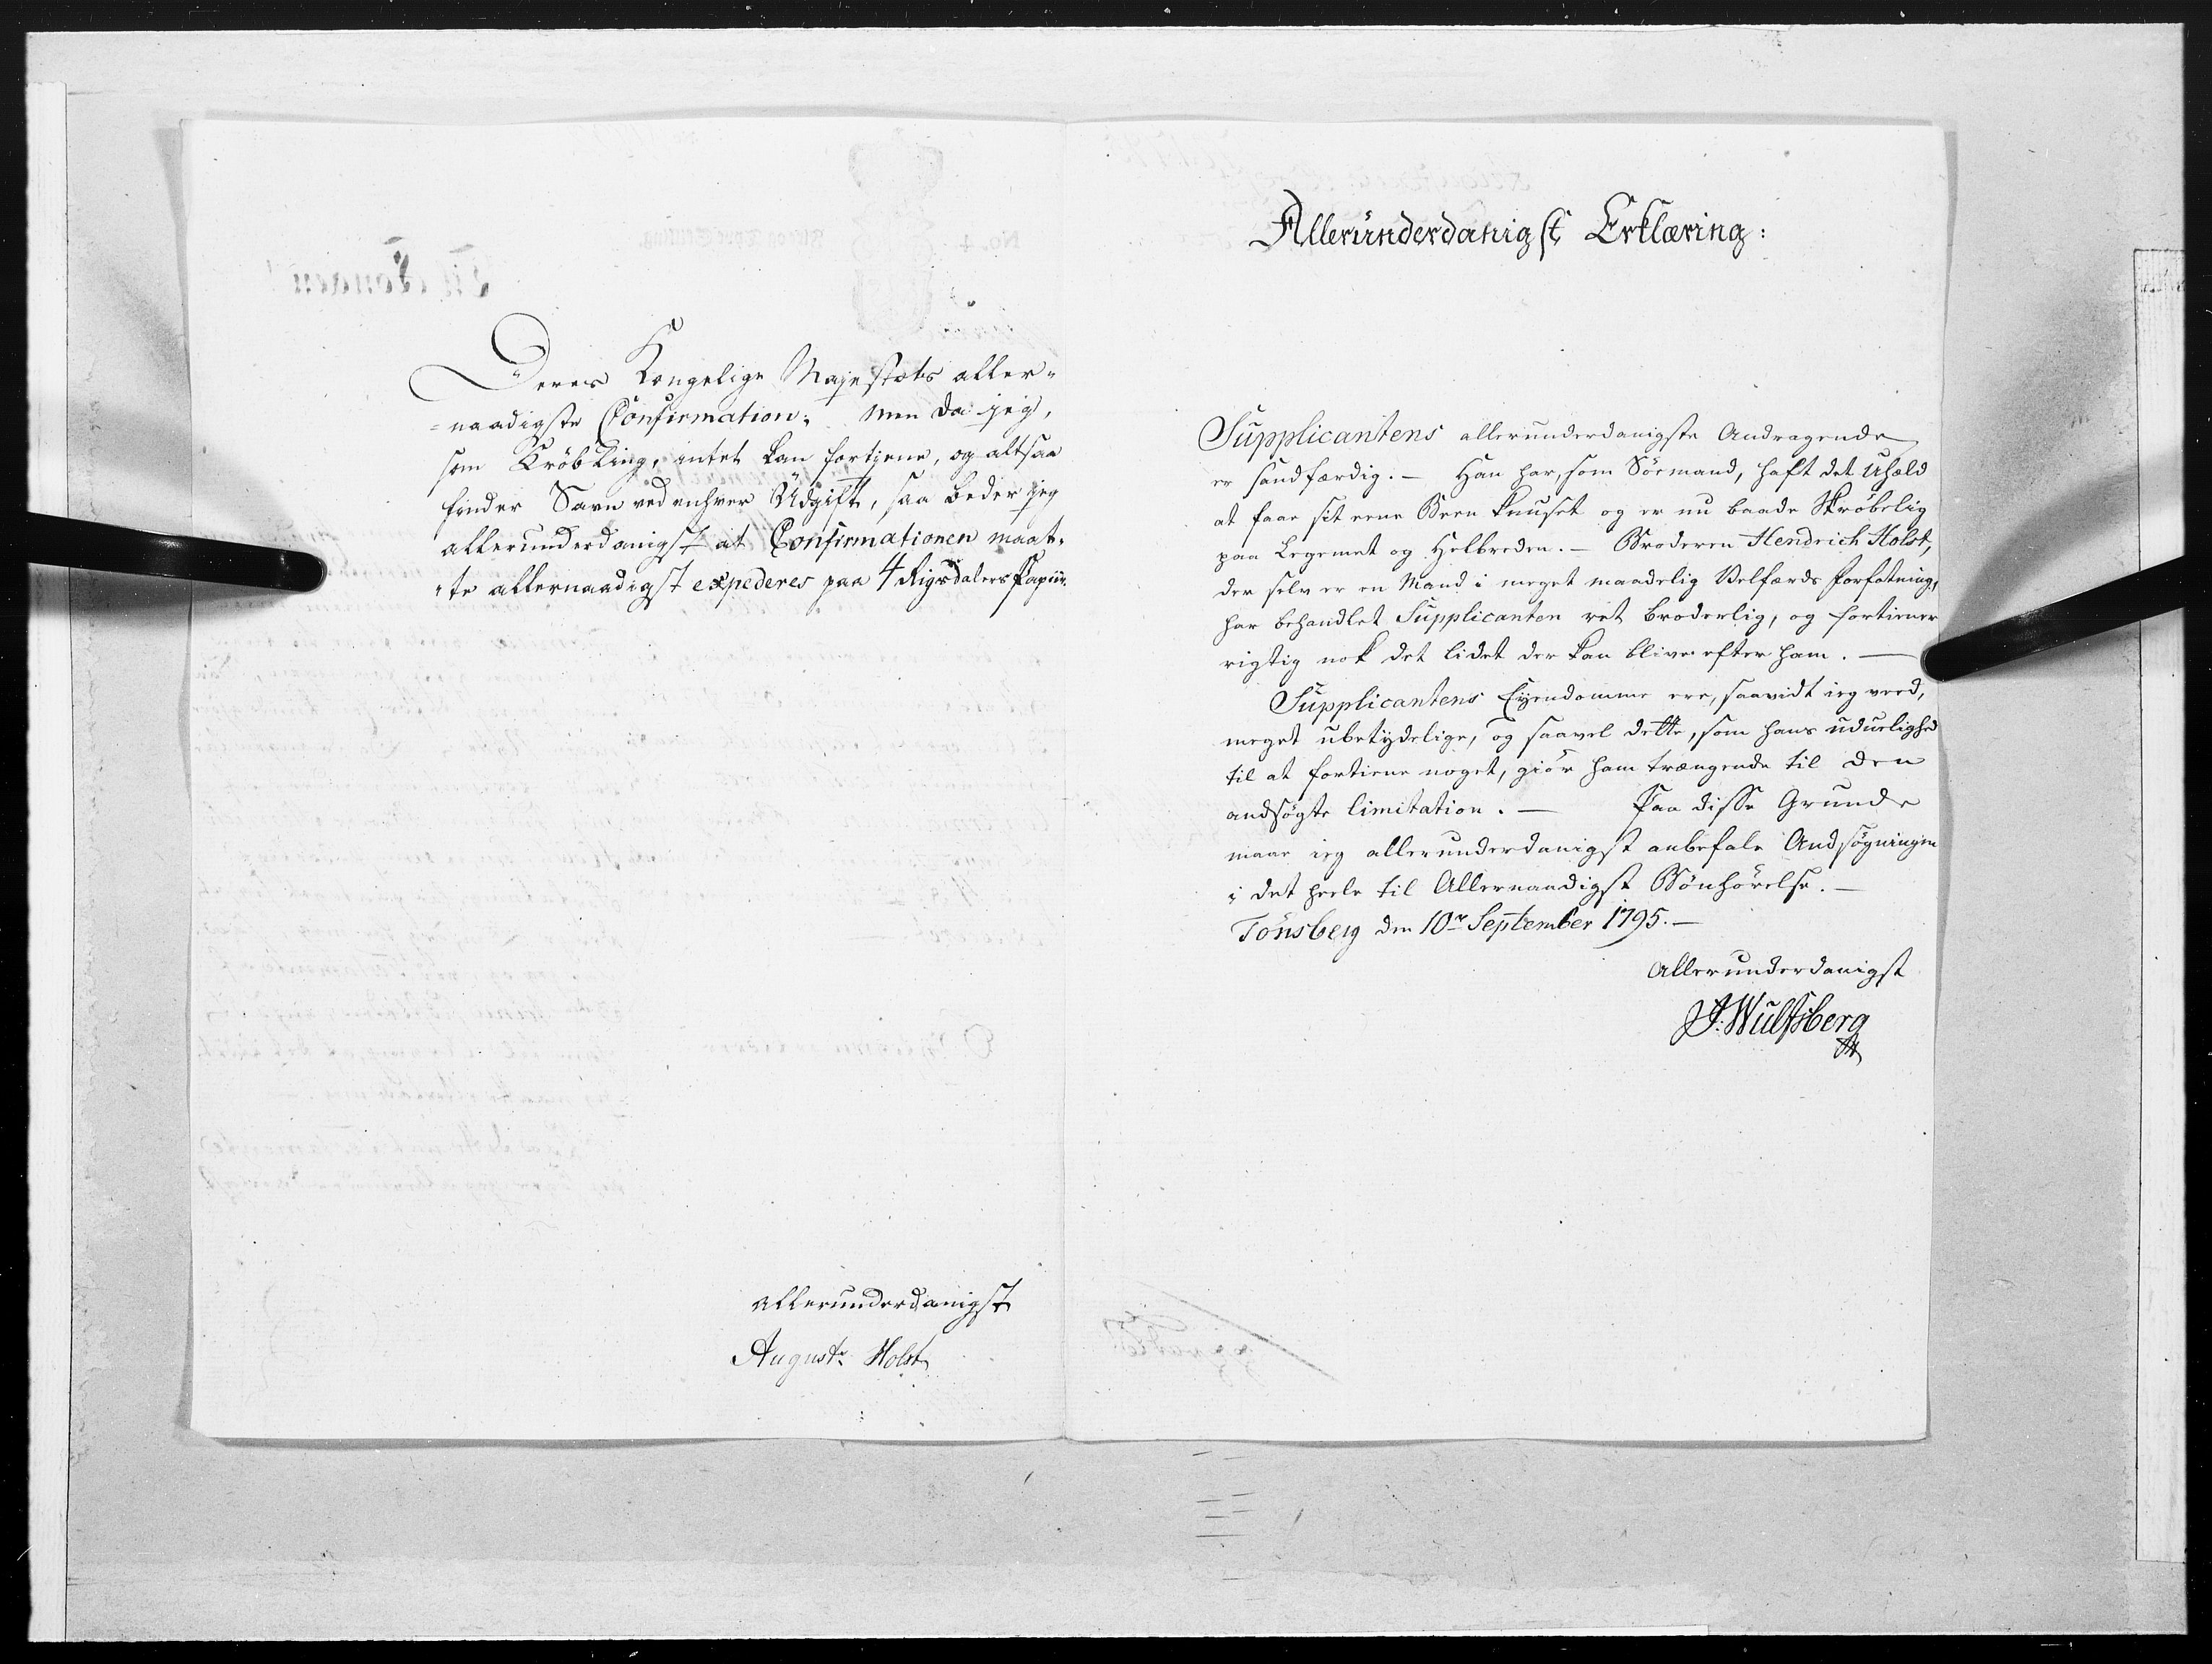 Deres Kongelige Majestæts aller-
-naadigste Confirmation; men da jeg,
som Krøbling, intet kan fortjene, og altsaa
finder Savn ved enhver Udgift, saa beder jeg
allerunderdanigst at Confirmationen maat-
-te allernaadigst expederes paa 4 Rigsdalers Papiir.
allerunderdanigst
August Holst
Allerunderdanigst Erklæring:
Supplicantens allerunderdanigste Andragende
er sandfærdig. — Han har, som Söemand, haft det Uhæld
at faae sit eene Been knuset og er nu baade Skröbelig
paa Legemet og Helbreden. — Broderen Hendrich Holst,
der selv er en Mand i meget maadelig Velfærds Forfatning,
har behandlet Supplicanten ret broderlig, og fortiener
rigtig nok det lidet der kan blive efter ham. —
Supplicantens Eyendomme ere, saavidt ieg veed,
meget ubetydelige, og saavel dette, som hans uduelighed
til at fortiene noget, giör ham trængende til den
andsøgte limitation. — Paa disse Grunde
maae ieg allerunderdanigst anbefale Andsøgningen
i det heele til Allernaadigst Bönhörelse. —
Tönsberg den 10de September 1795. —
Allerunderdanigst
J. Wulfsberg